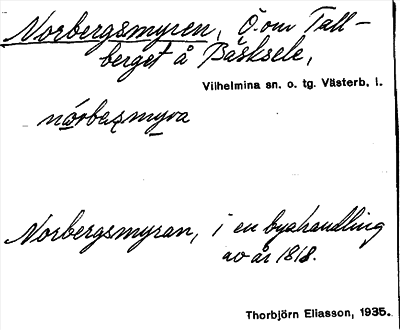 Norbergsmyren, Ö. om Tall-
berget å Bäsksele,
Vilhelmina sn. o. tg. Västerb. l.
nórbaṣmyra
Norbergsmyran, i en byahandling
av år 1818.
Thorbjörn Eliasson, 1935.